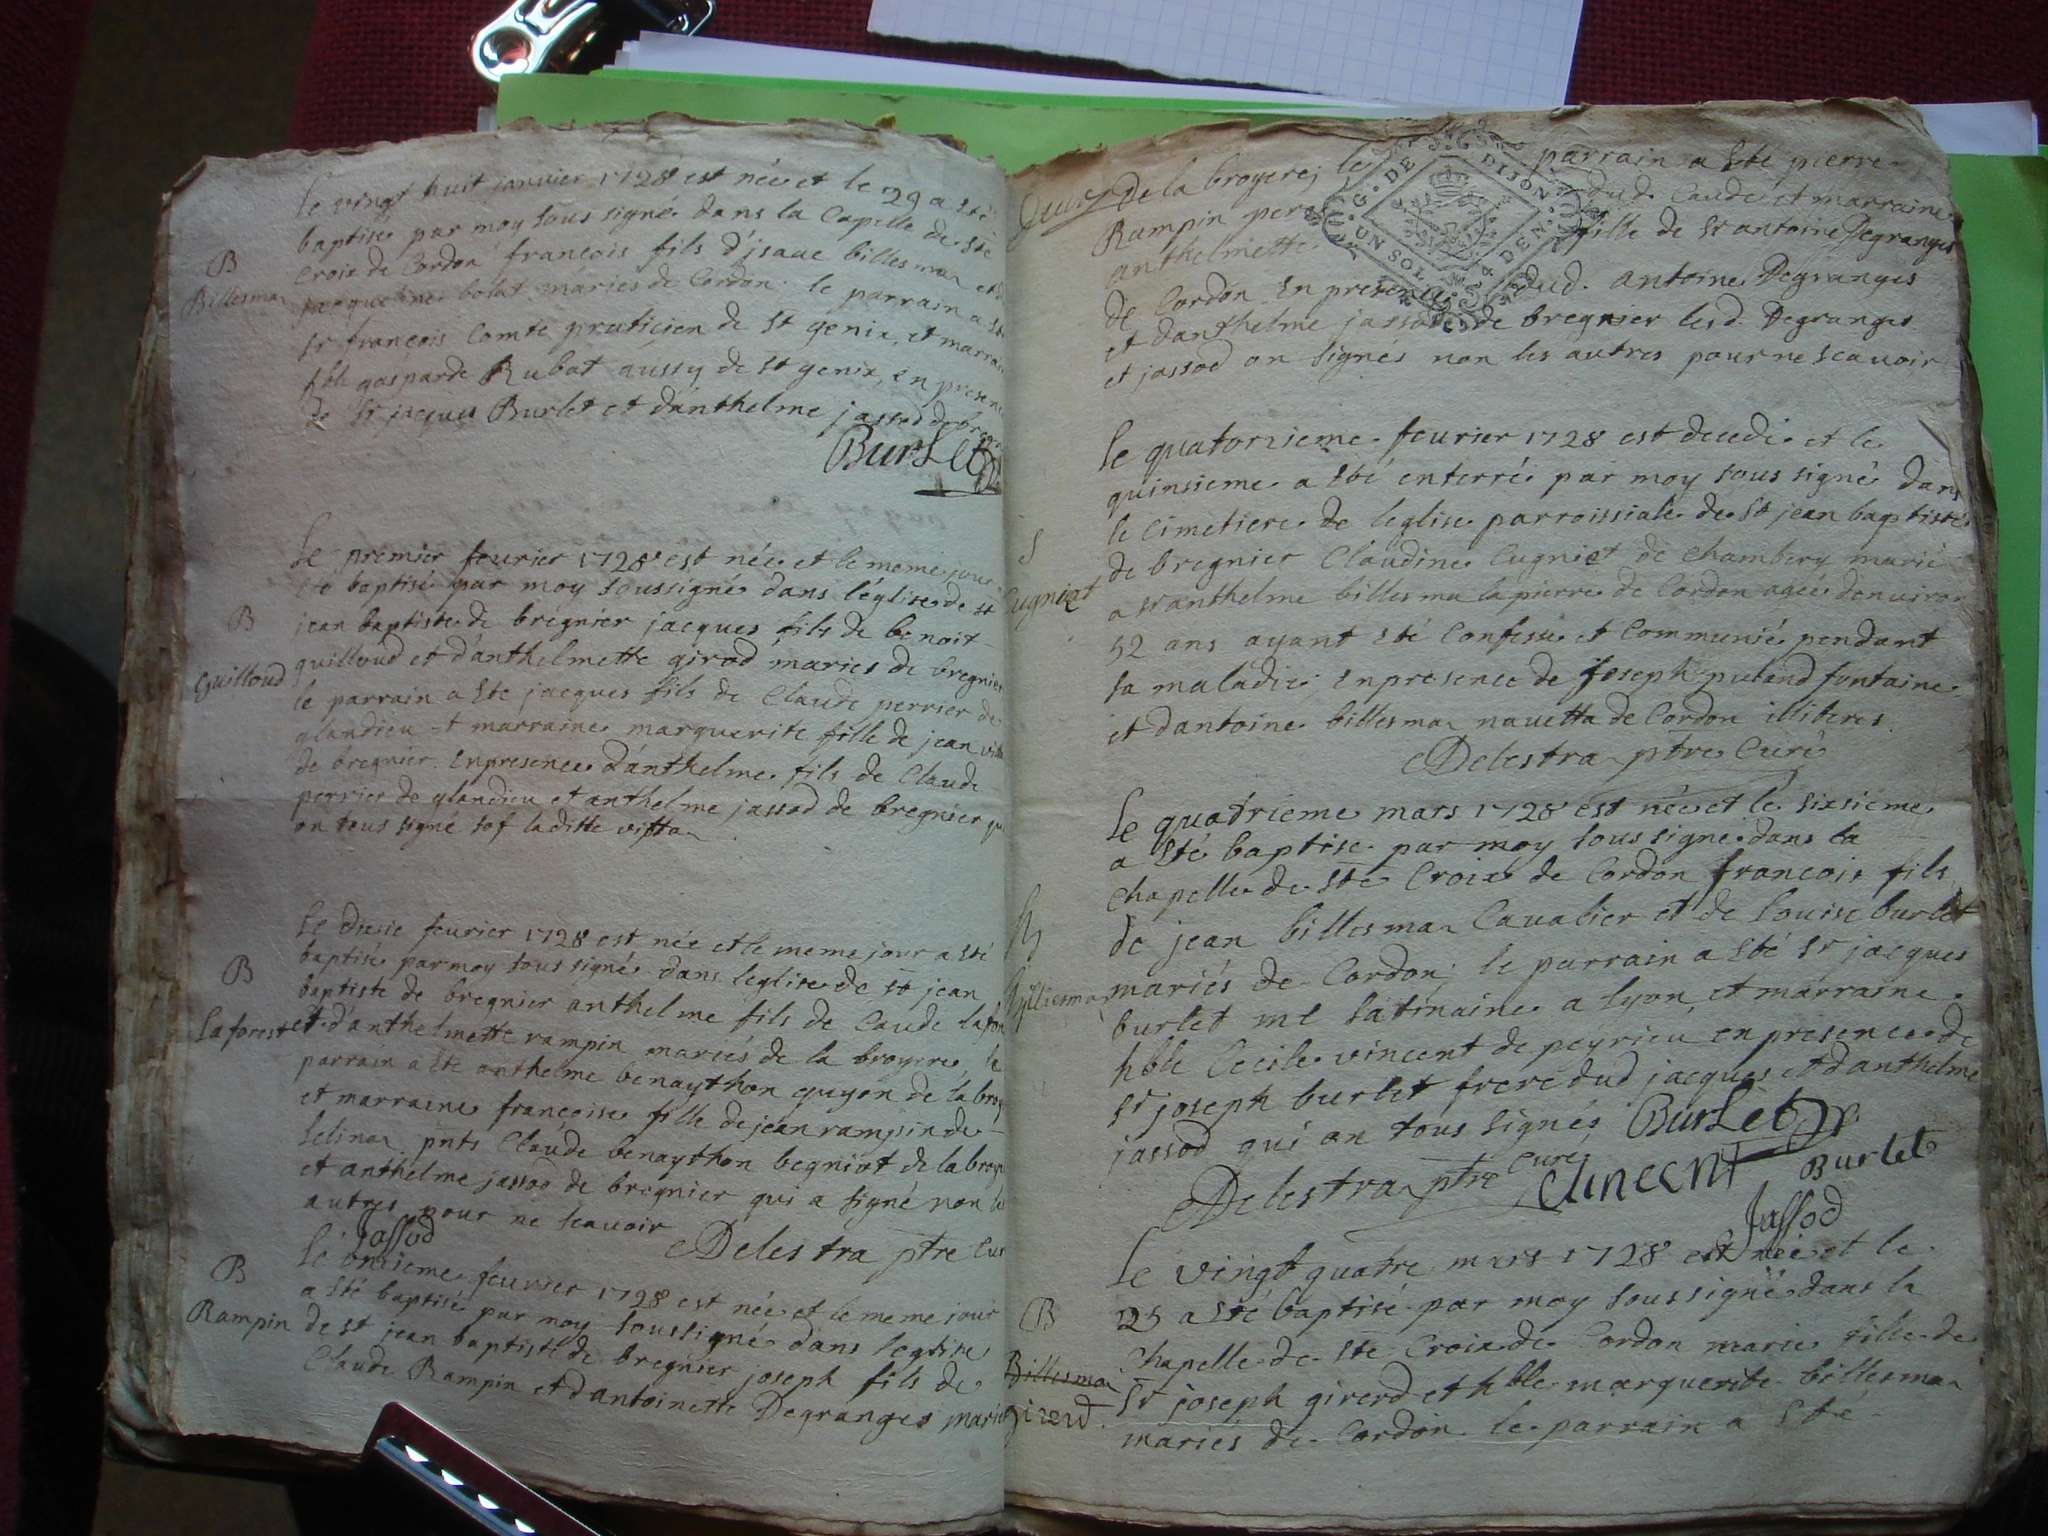 le vingt huit janvier 1728 est née et le 29 a sté
baptisé par moy sous signé dans la Capelle de ste
B
croix de Cordon francois fils d'jsaac billesma et
Billesma
jacquemine bolat mariés de Cordon. le parrain a sté
sr francois Comte praticien de st genix, et marraine
hble gasparde Rubat aussy de st genix, en presence
de sr jacques Burlet et d'anthelme jassod de
Burlet
Le premier feurier 1728 est née et le meme jour
sté baptisé par moy soussigné dans l'église de st
B
jean baptiste de brégnier jacques fils de benoit
Guilloud
guilloud et d'anthelmette girod mariés de bregnier
le parrain a sté jacques fils de Claude perrier de
glandieu et marraine marguerite fille de jean
de bregnier. En presence d'anthelme fils de Claude
perrier de glandieu et anthelme jassod de bregnier
on tous signé sof laditte
Le disie feurier 1728 est née et le meme jour a sté
B
baptisé par moy sous signé dans leglise de st jean
baptiste de bregnier anthelme fils de Claude
Laforest
et d'anthelmette rampin mariés de la broyere, le
parrain a sté anthelme benaython guyon de la
et marraine francoise fille de jean rampin de
selina pnts Claude benaython begniot de la
et anthelme jassod de bregnier qui a signé non les
autres pour ne scauoir
Jassod
Delestra ptre Cur
B
Le onzieme feurier 1728 est née et le meme jour
a sté baptisé par moy soussigné dans leglise
Rampin
de st jean baptiste de bregnier joseph fils de
Claude Rampin et d'antoinette Degranges mariés
de la broyere; le parrain a sté pierre
Rampin pere dud. Claude et marraine
anthelmette fille de sr antoine Degranges
de Cordon En presence dud. antoine Degranges
et danthelme jassod de bregnier lesd. Degranges
et jassod on signés non les autres pour ne scauoir
G. DE DIJON
UN SOL 4 DEN.
le quatorzieme feurier 1728 est decedé et le
quinsieme a sté enterré par moy sous signé dans
le Cimetiere de leglise parroissiale de st jean baptiste
S
de bregnier Claudine Cugniet de Chambery marié
Cugniet
a sr anthelme billesma lapierre de Cordon agée denuiron
52 ans ayant sté Confessé et Communié pendant
sa maladie En presence de joseph putand fontaine
et dantoine billesma nauetta de Cordon illiteres
Delestra ptre Curé
Le quatrieme mars 1728 est née et le sixsieme
a sté baptisé par moy sous signé dans la
chapelle de ste Croix de Cordon francois fils
B
de jean billesma Caualier et de Louise burlet
Billesma
mariés de Cordon; le parrain a sté sr jacques
burlet me satinaire a lyon et marraine
hble Cecile vincent de peyrieu en presence de
sr joseph burlet frere dud jacques et danthelme
jassod qui on tous signés
Burlet
Delestra ptre Curé
Cvincent
Burlet
Jassod
Le vingt quatre mars 1728 est née et le
B
25 a sté baptisé par moy sous signé dans la
Chapelle de ste Croix de Cordon marie fille de
Billesma
sr joseph girerd et hble marguerite billesma
girerd
mariés de Cordon le parrain a sté